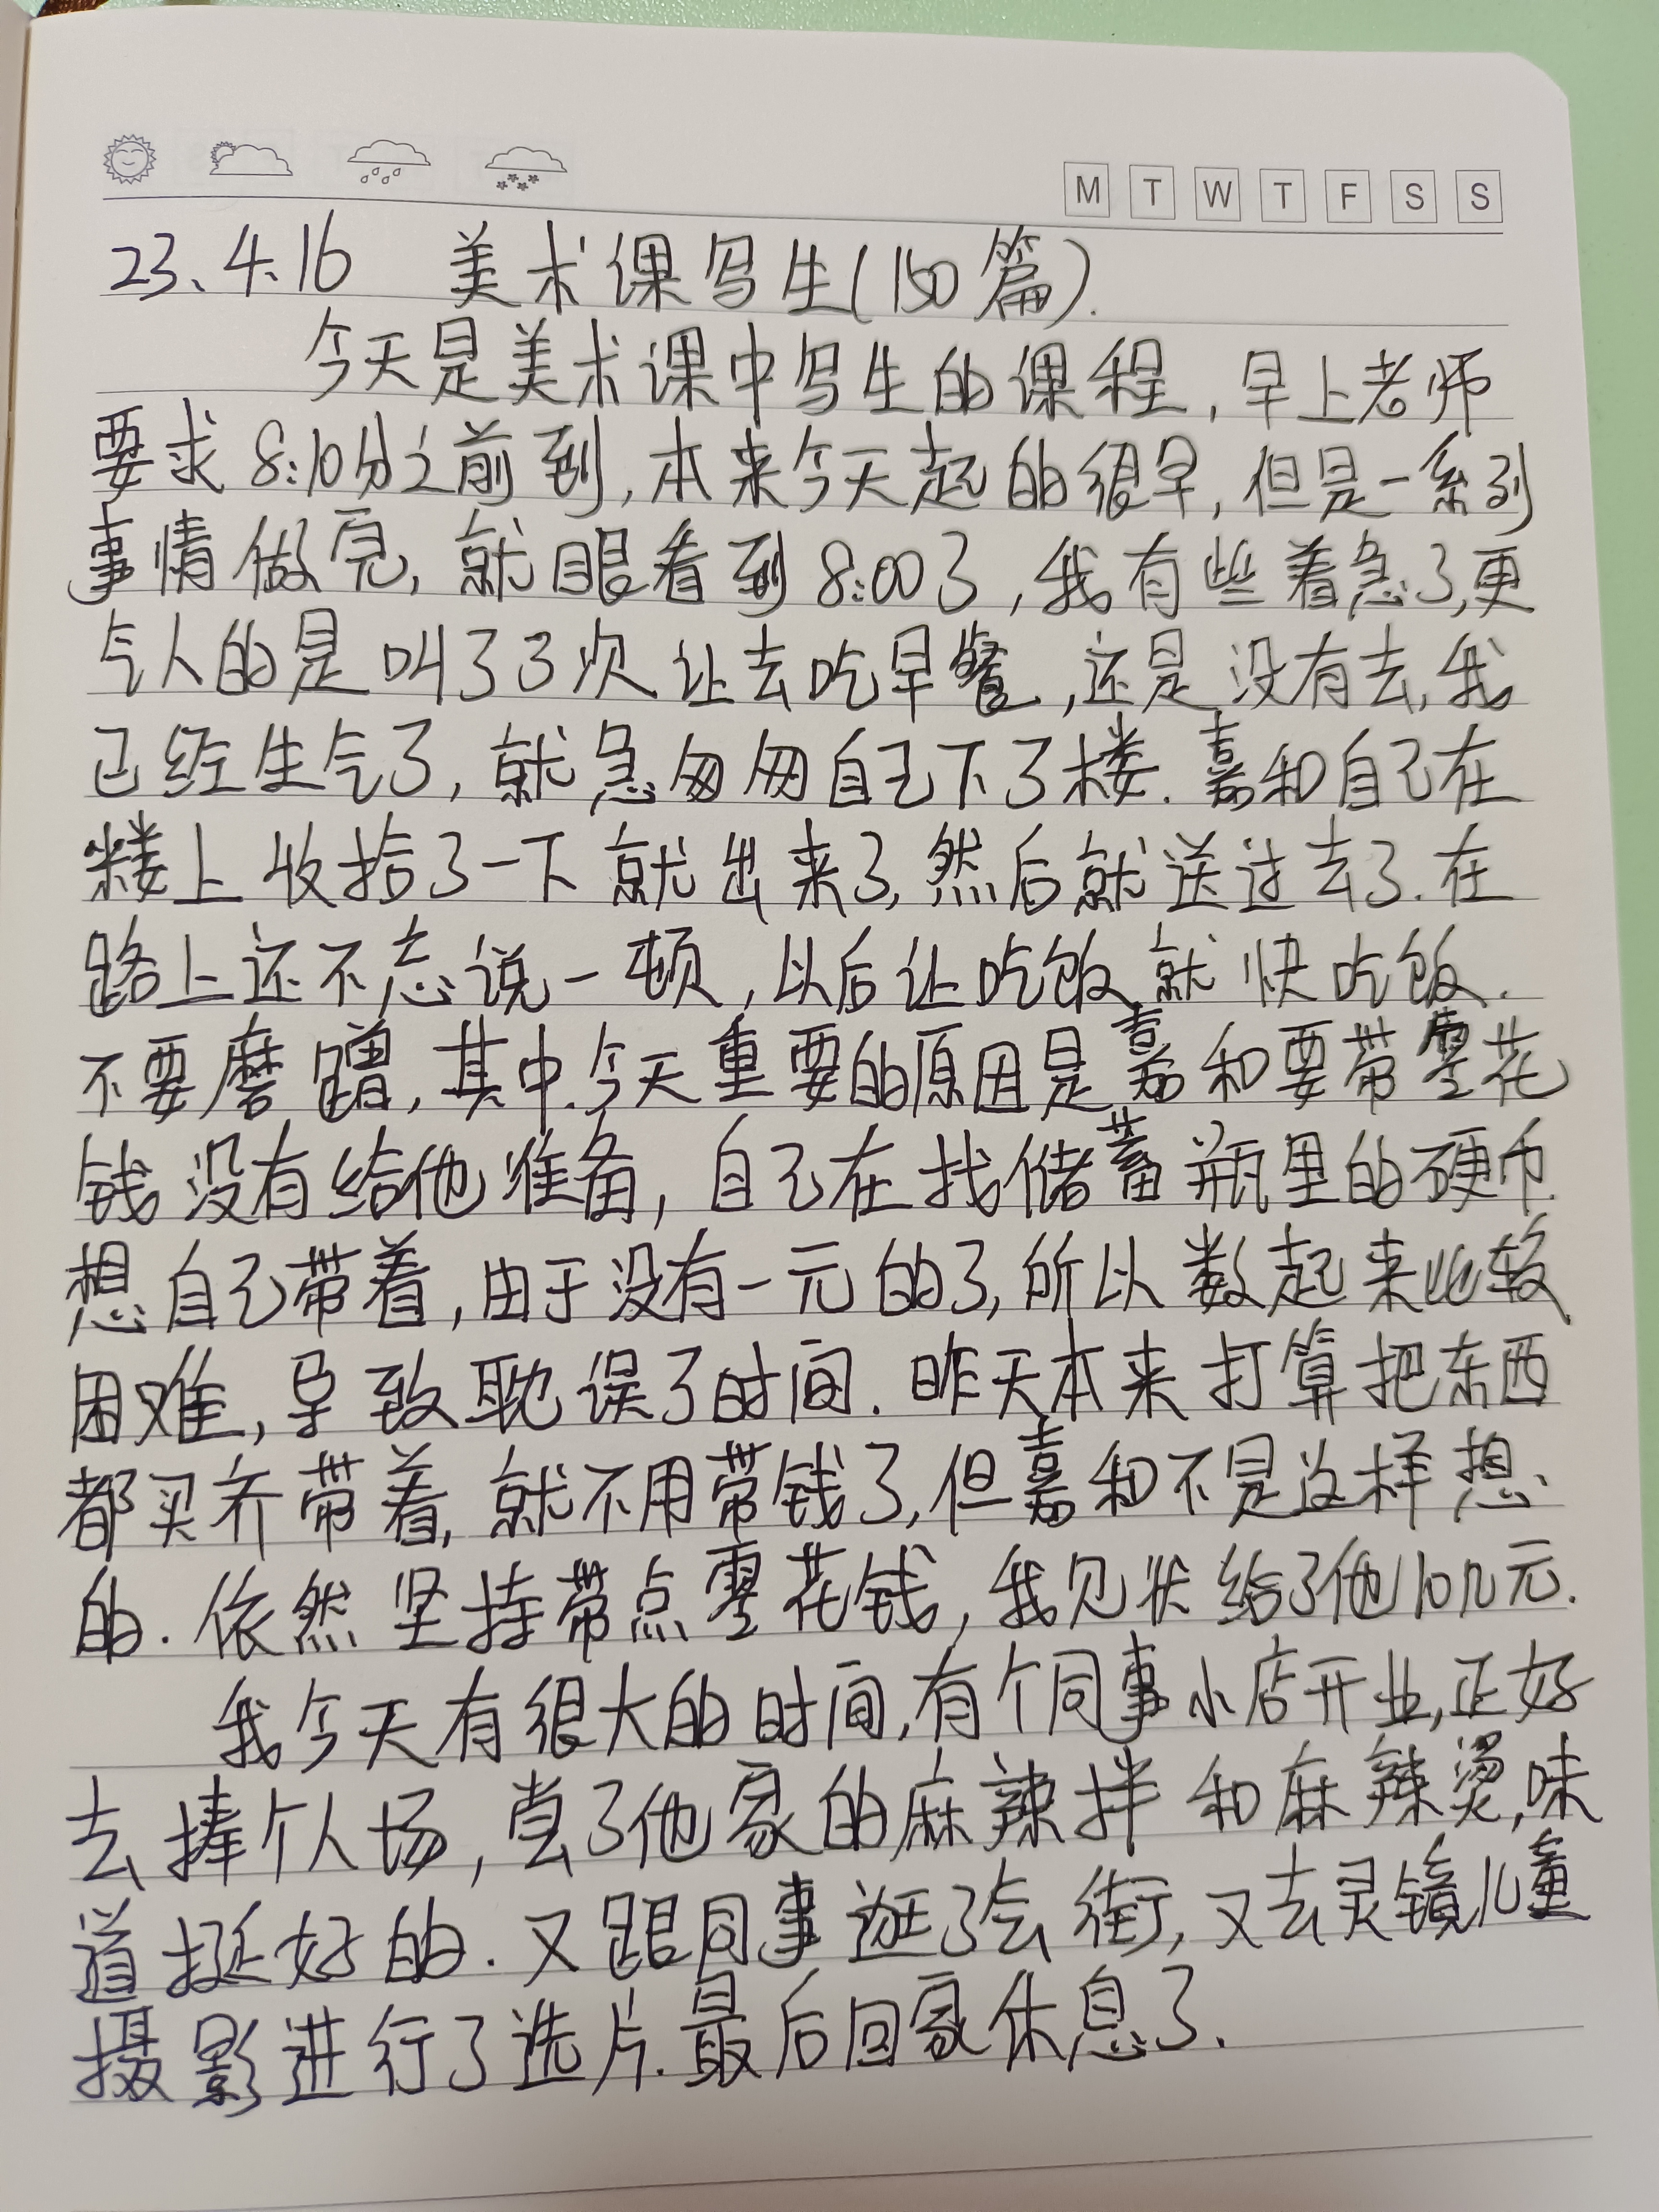 M T W T F S S
23.4.16 美术课写生(150篇).
今天是美术课中写生的课程,早上老师
要求8:10分之前到,本来今天起的很早,但是一系列
事情做完,就眼看到8:00了,我有些着急了,更
气人的是叫了3次让去吃早餐,还是没有去,我
已经生气了,就急匆匆自己下了楼.嘉和自己在
楼上收拾了一下就出来了,然后就送过去了.在
路上还不忘说一顿,以后让吃饭就快吃饭.
不要磨蹭,其中.今天重要的原因是嘉和要带零花
钱没有给他准备,自己在找储蓄瓶里的硬币.
想自己带着,由于没有一元的了,所以数起来比较
困难,导致耽误了时间.昨天本来打算把东西
都买齐带着,就不用带钱了,但嘉和不是这样想
的.依然坚持带点零花钱,我见状给了他10几元.
我今天有很大的时间,有个同事小店开业,正好
去捧个人场,尝了他家的麻辣拌和麻辣烫,味
道挺好的.又跟同事逛了会街,又去灵镜儿童
摄影进行了选片.最后回家休息了.